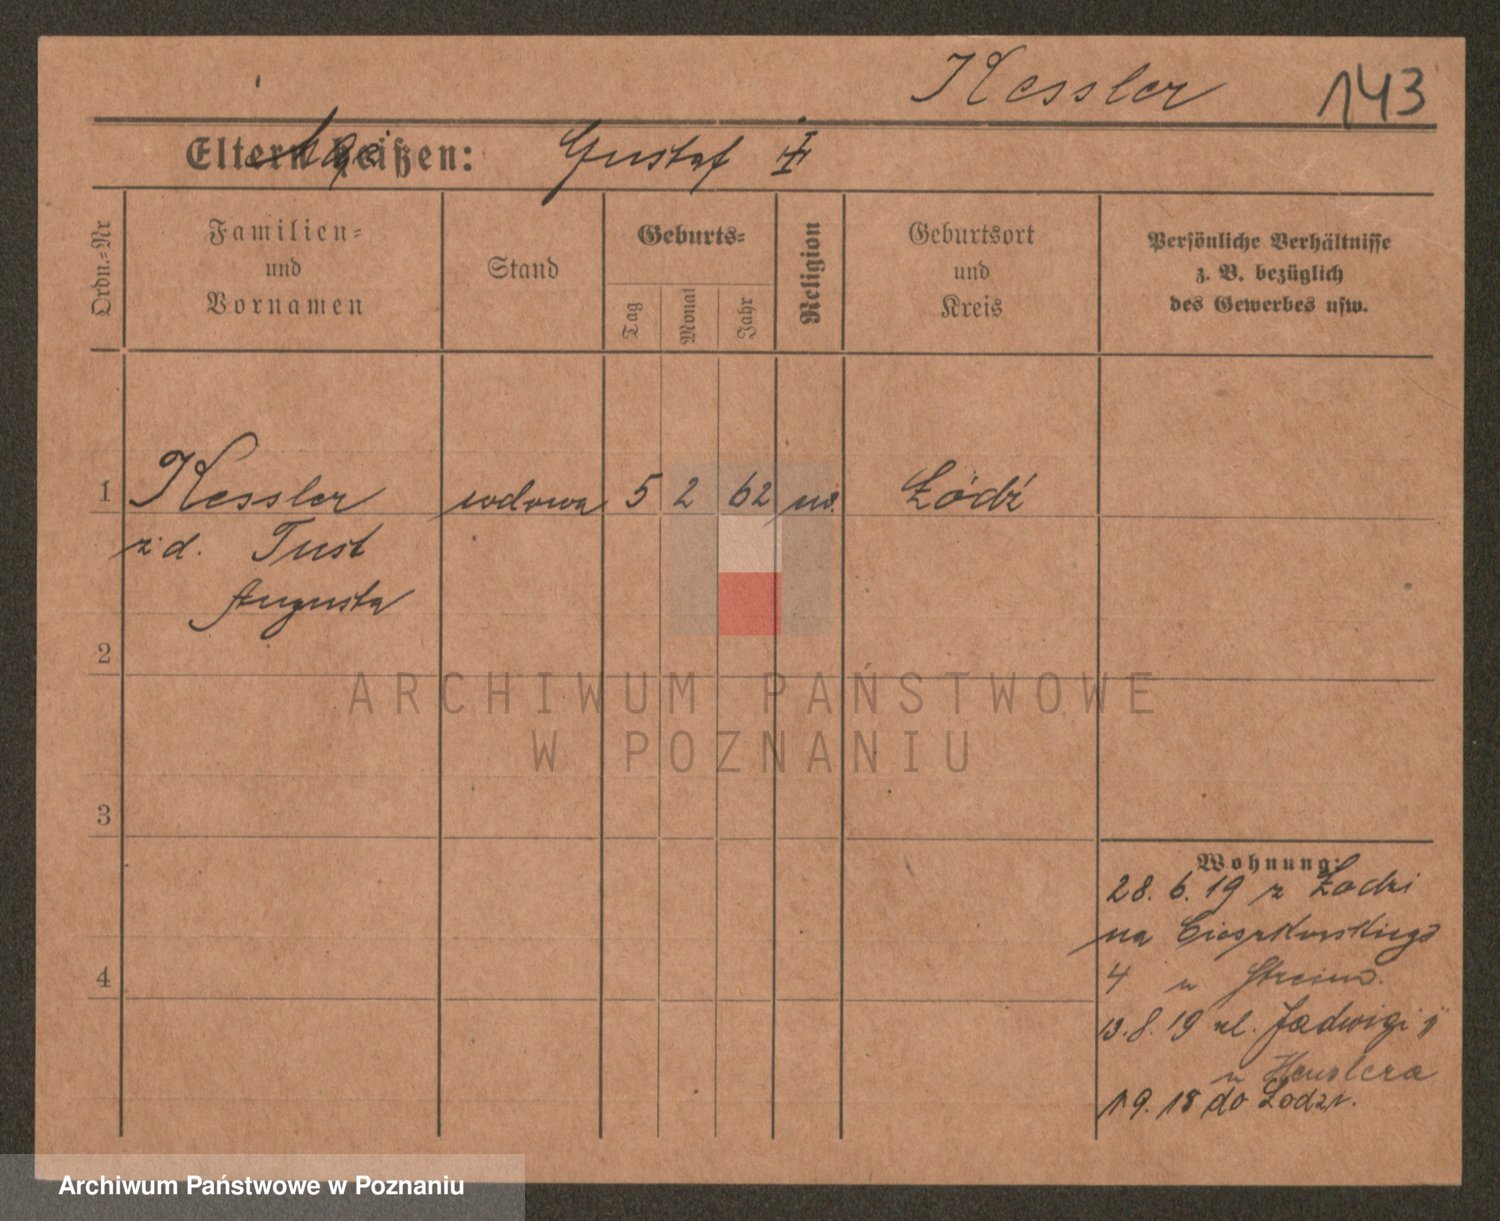 Kessler 143
Eltern heißen: Gustaf
Ordn.-Nr
Familien-
und
Vornamen
Stand
Geburts-
Tag
Monat
Jahr
Religion
Geburtsort
und
Kreis
Persönliche Verhältnisse
z. B. bezüglich
des Gewerbes usw.
1 Kessler wdowa 5 2 62 Łódź
z d. Tust
Augusta
2
ARCHIWUM PAŃSTWOWE
W POZNANIU
3
4
Wohnung:
28. 6. 19 z Łodzi
na Cieszkowskiego
4 u
13. 8. 19 ul. Jadwigi
u Henslera
1 9. 18 do Łodzi.
Archiwum Państwowe w Poznaniu